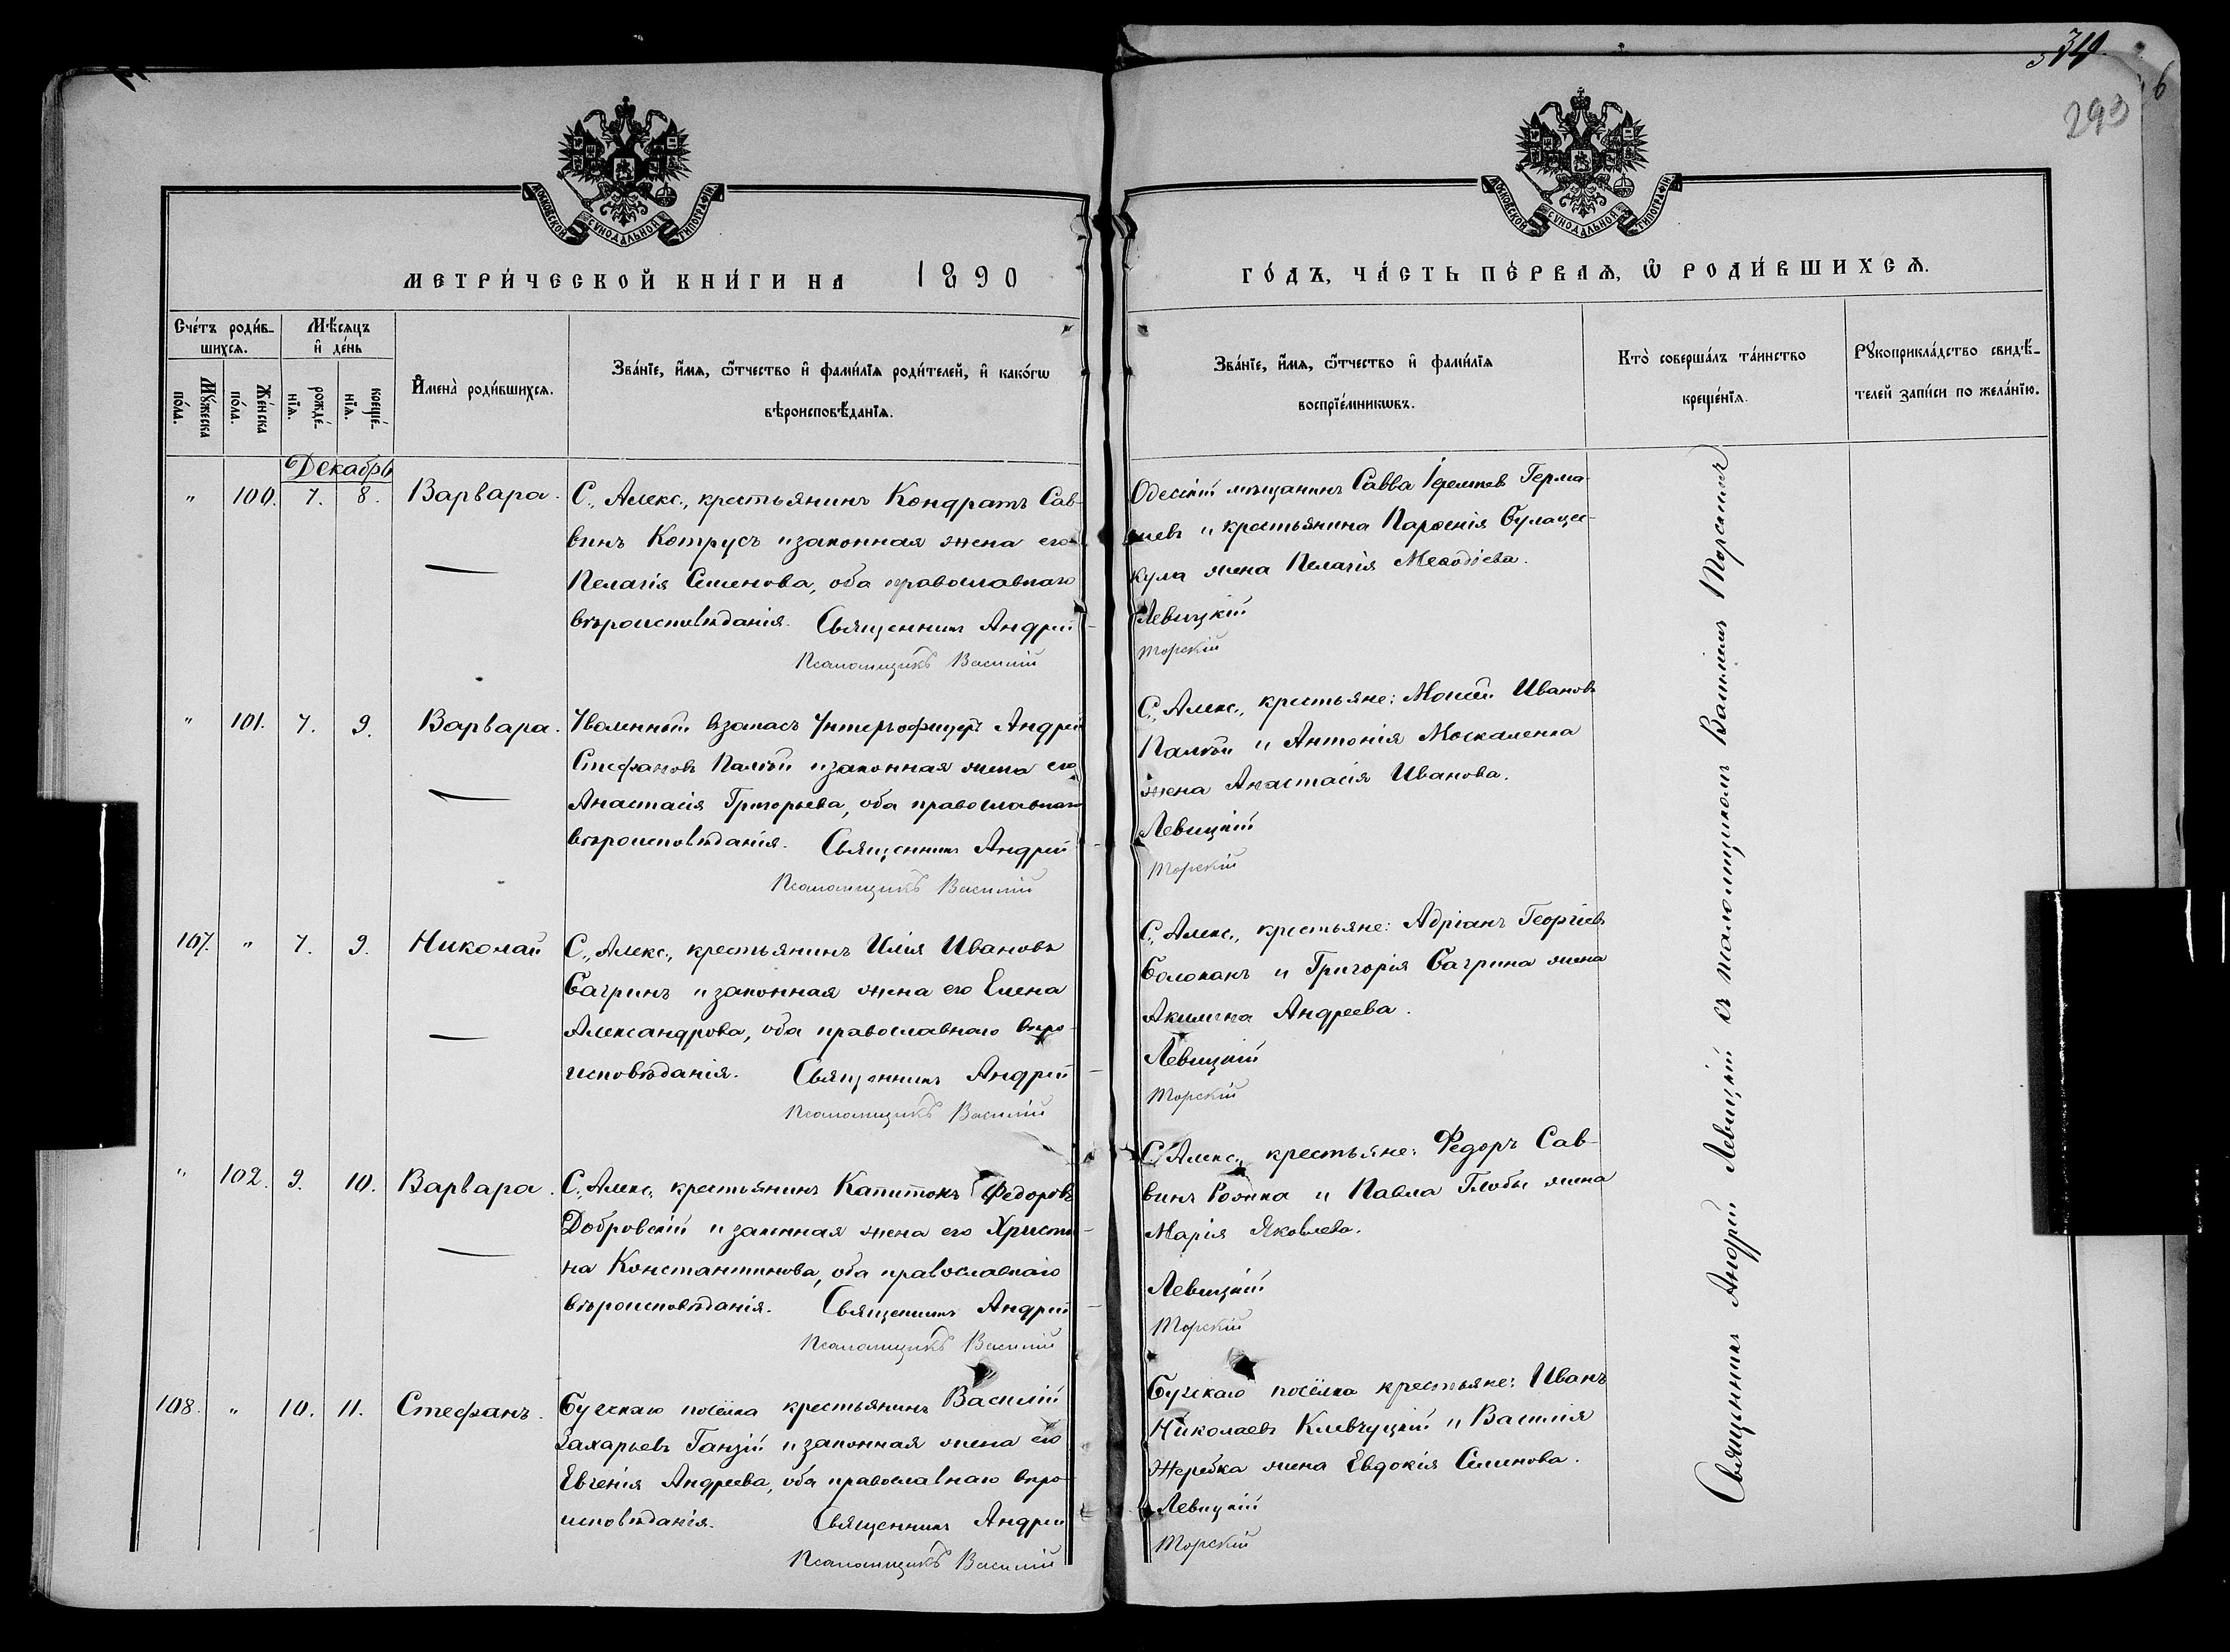 319.
293
6
МОСКОВСКОЙ СУНОДАЛЬНОЙ ТИПОГРАФІИ
МОСКОВСКОЙ СУНОДАЛЬНОЙ ТИПОГРАФІИ
МЕТРИ́ЧЕСКОЙ КНИ́ГИ НА 1890
ГО́ДЪ, ЧА́СТЬ ПЕ́РВАѦ, Ѽ РОДИ́ВШИХСѦ.
Сче́тъ роди́в-
шихсѧ.
Мꙋ́жеска
по́ла.
Же́нска
по́ла.
Мѣ́сяцъ
и҆ де́нь
рожде́-
нїѧ.
креще́-
нїѧ.
И҆мена̀ роди́вшихсѧ.
Зва́нїе, и҆́мѧ, ѻ҆́тчество и҆ фами́лїѧ роди́телей, и҆ како́гѡ
вѣроисповѣ́данїѧ.
Зва́нїе, и҆́мѧ, ѻ҆́тчество и҆ фами́лїѧ
воспрїе́мникѡвъ.
Кто̀ соверша́лъ та́инство
креще́нїѧ.
Рꙋкоприкла́дство свидѣ́-
телей за́писи по жела́нїю.
Декабрь
" 100. 7. 8. Варвара. С., Алекс., крестьянинъ Кондратъ Сав-
винъ Котрусъ и законная жена его
Пелагія Семенова, оба православнаго
вѣроисповѣданія. Священникъ Андрей
Псаломщикъ Василій
Одесскій мѣщанинъ Савва
и крестьянина Парѳенія
кула жена Пелагія Меѳодіева.
Левицкій
Торскій
" 101. 7. 9. Варвара. Уволенный взапасъ Унтеръ-офицеръ Андрей
Стефановъ Палій и законная жена его
Анастасія Григорьева, оба православнаго
вѣроисповѣданія. Священникъ Андрей
Псаломщикъ Василій
С., Алекс., крестьяне: Моисей Ивановъ
Палій и Антонія Москаленка
жена Анастасія Иванова.
Левицкій
Торскій
107. " 7. 9. Николай С., Алекс., крестьянинъ Илія Ивановъ
Багринъ и законная жена его Елена
Александрова, оба православнаго вѣро-
исповѣданія. Священникъ Андрей
Псаломщикъ Василій
С., Алекс., крестьяне: Адріанъ Георгіевъ
Болоканъ и Григорія Багрина жена
Акилина Андреева.
Левицкій
Торскій
" 102. 9. 10. Варвара. С., Алекс., крестьянинъ Капитонъ Федоровъ
Добровскій и законная жена его Христи-
на Константинова, оба православнаго
вѣроисповѣданія. Священникъ Андрей
Псаломщикъ Василій
С., Алекс., крестьяне: Федоръ Сав-
винъ и Павла Глобы жена
Марія Яковлева.
Левицкій
Торскій
108. " 10. 11. Стефанъ. Бугскаго посёлка крестьянинъ Василій
Захарьевъ Ганзій и законная жена его
Евгенія Андреева, оба православнаго вѣро-
исповѣданія. Священникъ Андрей
Псаломщикъ Василій
Бугскаго посёлка крестьяне: Иванъ
Николаевъ Клевчуцкій и Василія
Жеребка жена Евдокія Семенова.
Левицкій
Торскій
Священникъ Андрей Левицкій съ псаломщикомъ Василіемъ Торскимъ